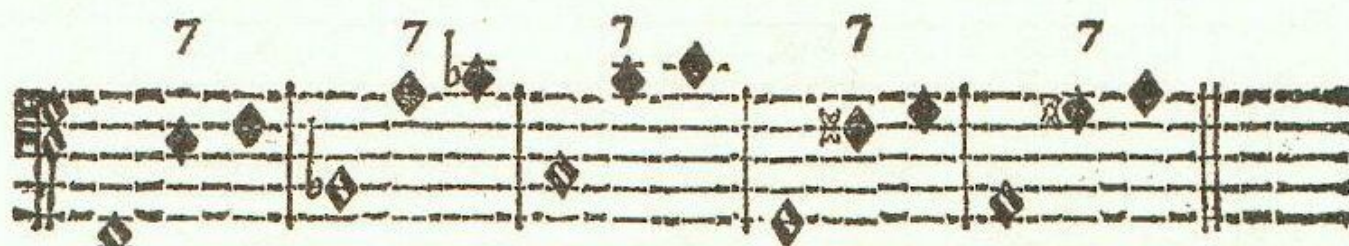 7 7 7 7 7